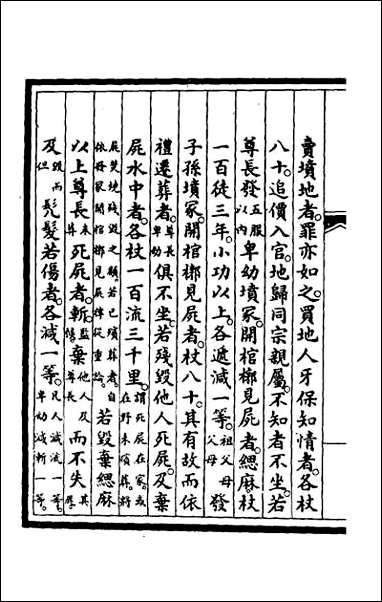 賣墳地者。罪亦如之。買地人牙保知情者。各杖
八十。追價入官。地歸同宗親屬。不知者不坐。若
尊長發五服以內卑幼墳冢。開棺槨見屍者。緦麻杖
一百徒三年。小功以上。各遞減一等。祖父母父母發
子孫墳冢。開棺槨見屍者。杖八十。其有故而依
禮遷葬者。尊長卑幼俱不坐。若殘毀他人死屍。及棄
屍水中者。各杖一百流三千里。謂死屍在家。或在野未殯葬。將
屍焚燒殘毀之類。若已殯葬者。自依發冢開棺槨見屍律從重論。若毀棄緦麻
以上尊長未死屍者。斬。監棄他人及尊長而不失其屍
及毀而但髠髮若傷者。各減一等。凡人減流一等。卑幼減斬一等。